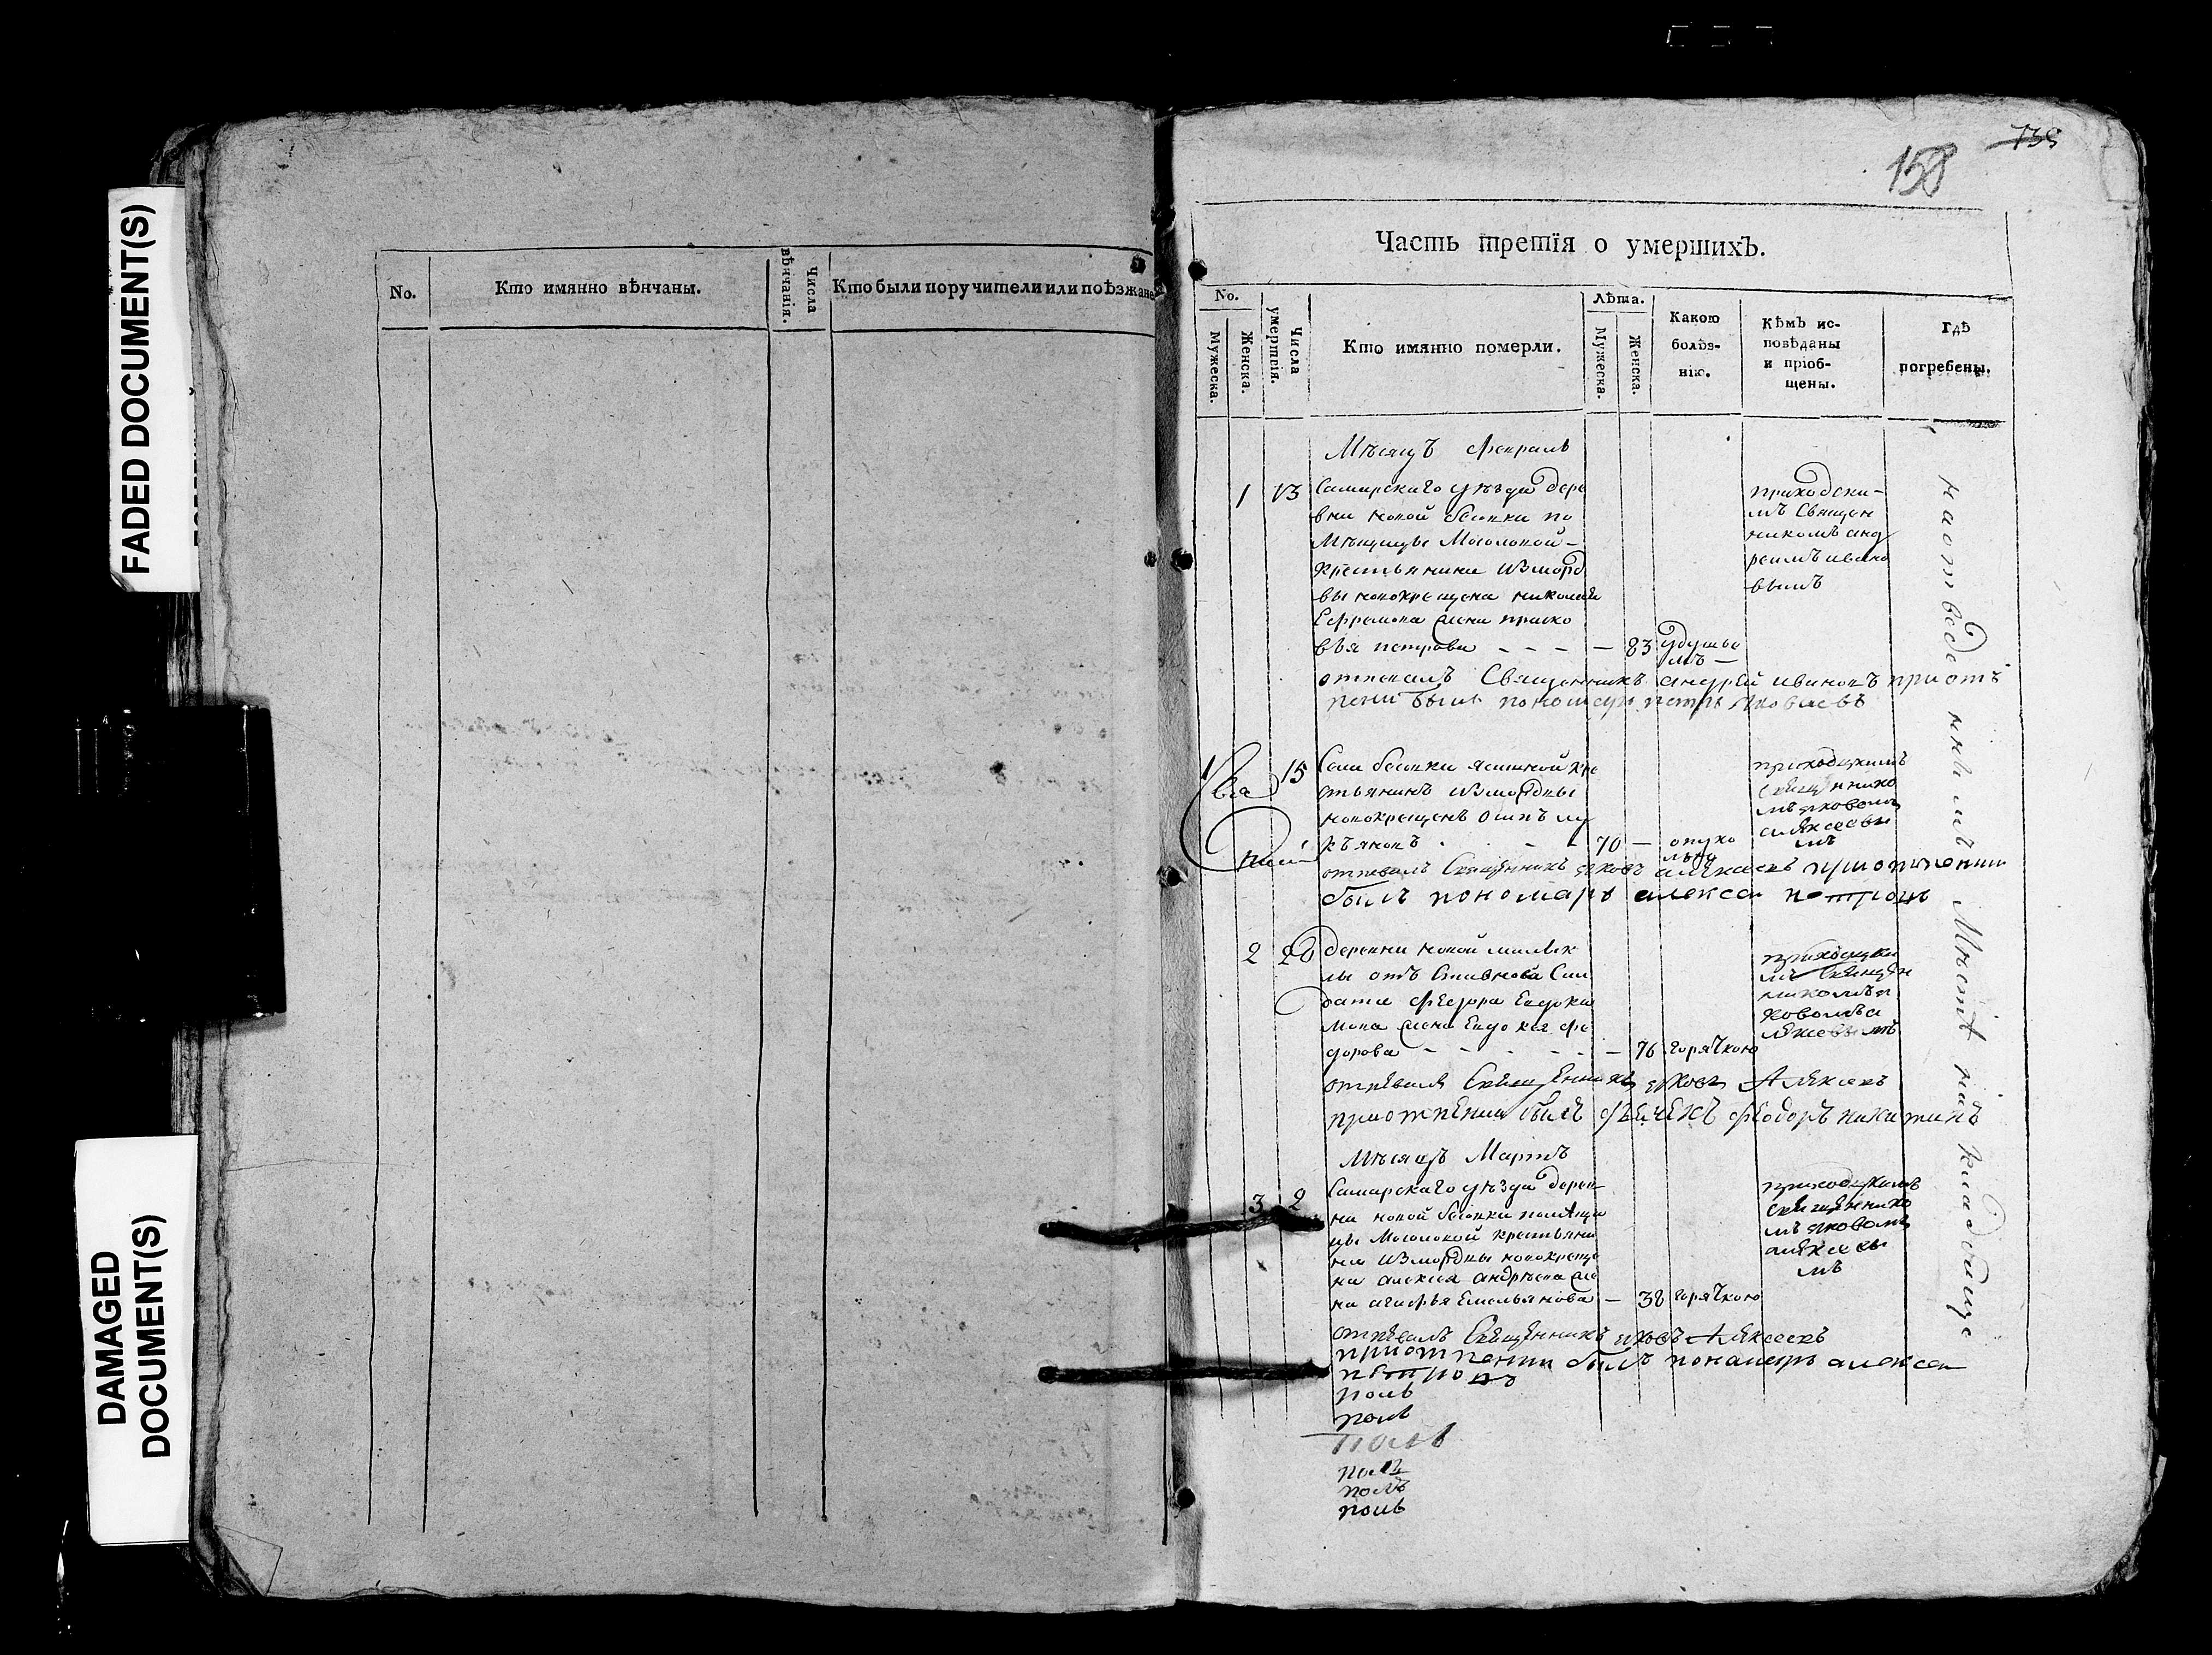 FADED DOCUMENT(S)
DAMAGED
DOCUMENT(S)
No.
Кто имянно вѣнчаны.
Числа
вѣнчанія.
Кто были поручители или поѣзжане
158
735
Часть третія о умершихъ.
No.
Мужеска.
Женска.
Числа
умертвія.
Кто имянно померли.
Лѣта.
Мужеска.
Женска.
Какою
болѣз-
нію.
Кѣмъ ис-
повѣданы
и пріоб-
щены.
Гдѣ
погребены.
Мѣсяцъ Февраль
1 13 Самарскаго уѣзда дере
вни новой бесовки по
мѣщицы
крестьянина изморд
вы новокрещена николая
Ефремова жена праско
вья петрова — 83 удушье
мъ —
приходски-
мъ Священ
никомъ анд
реемъ ивано
вымъ
отпевалъ Священникъ андрей ивановъ приотъ
пени былъ пономарь петръ яковлевъ
15 Села бесовки ясашной кре
стьянинъ измордвы
новокрещенъ осипъ лу
кьяновъ 70 — опухо
лью
приходскимъ
священнико
мъ яковомъ
алексеевы
мъ
отпевалъ Священникъ яковъ алексеевъ приотпении
былъ пономарь алексеи петровъ
2 20 деревни новой малык
лы отъ Ставнова Сол
дата Федора Евдоки
мова жена Евдокея фе
дорова — 76 горячкою
приходски
мъ Священ
никомъ я
ковомъ а
лексеевымъ
отпевалъ Священникъ яковъ Алексеевъ
приотпении былъ дьячекъ феодоръ никитинъ
Мѣсяцъ Мартъ
3 2 Самарскаго уѣзда дерев
ни новой бесовки помѣщи
цы крестьяни
на измордвы новокреще
на алексея андрѣева же
на агафья Емельянова — 38 горячкою
приходскимъ
священнико
мъ яковомъ
алексеевы
мъ
отпевалъ Священникъ яковъ Алексеевъ
приотпении былъ понамарь алексеи
петровъ
на отведенномъ месте на кладбище